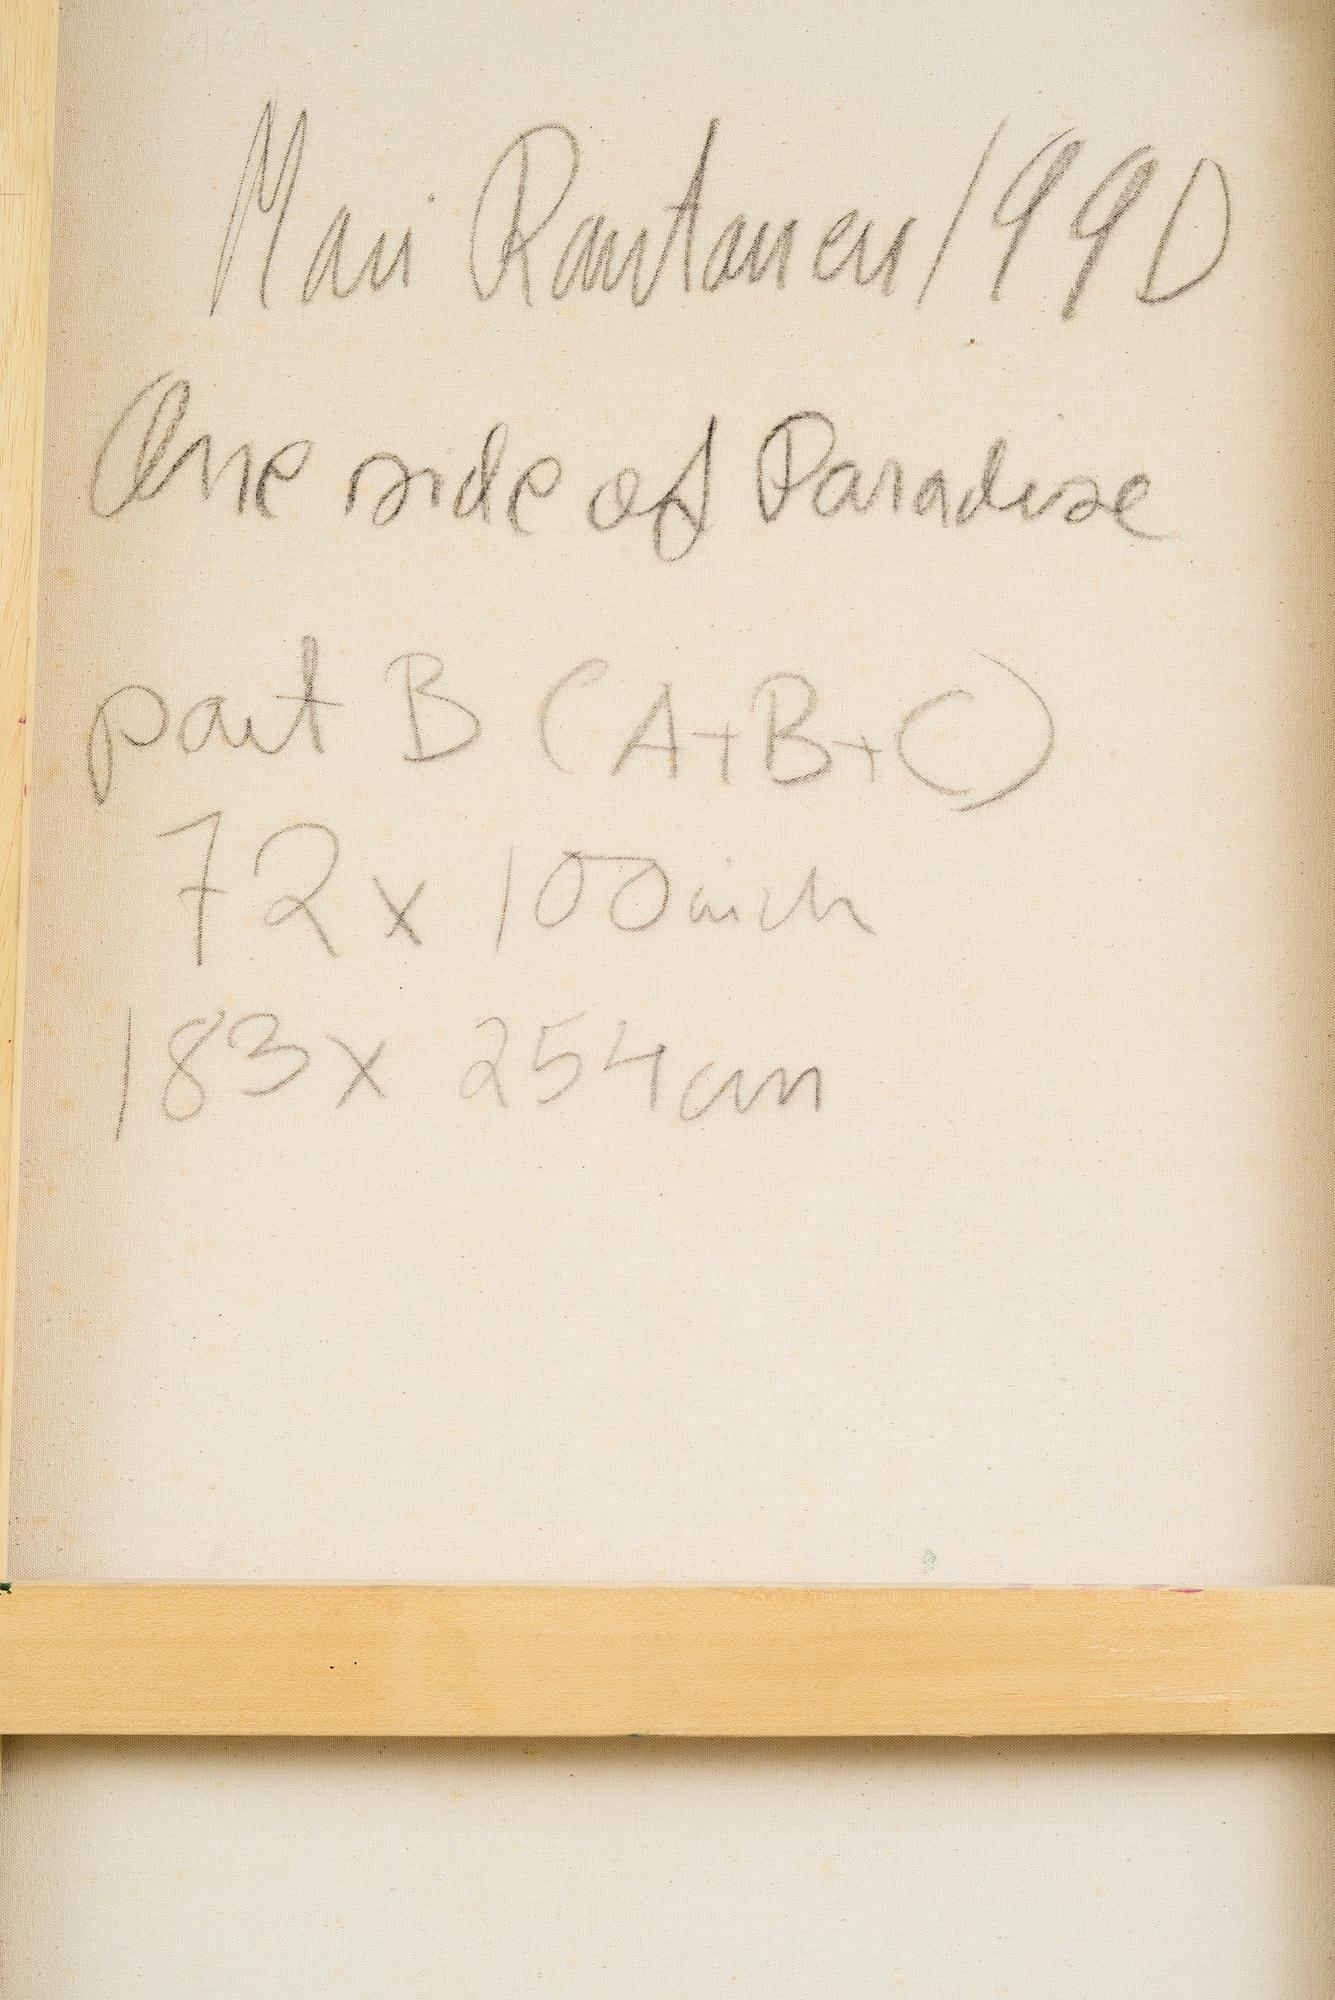 Mari Rantanen 1990
One side of Paradise
part B (A+B+C)
72 x 100 inch
183 x 254 cm